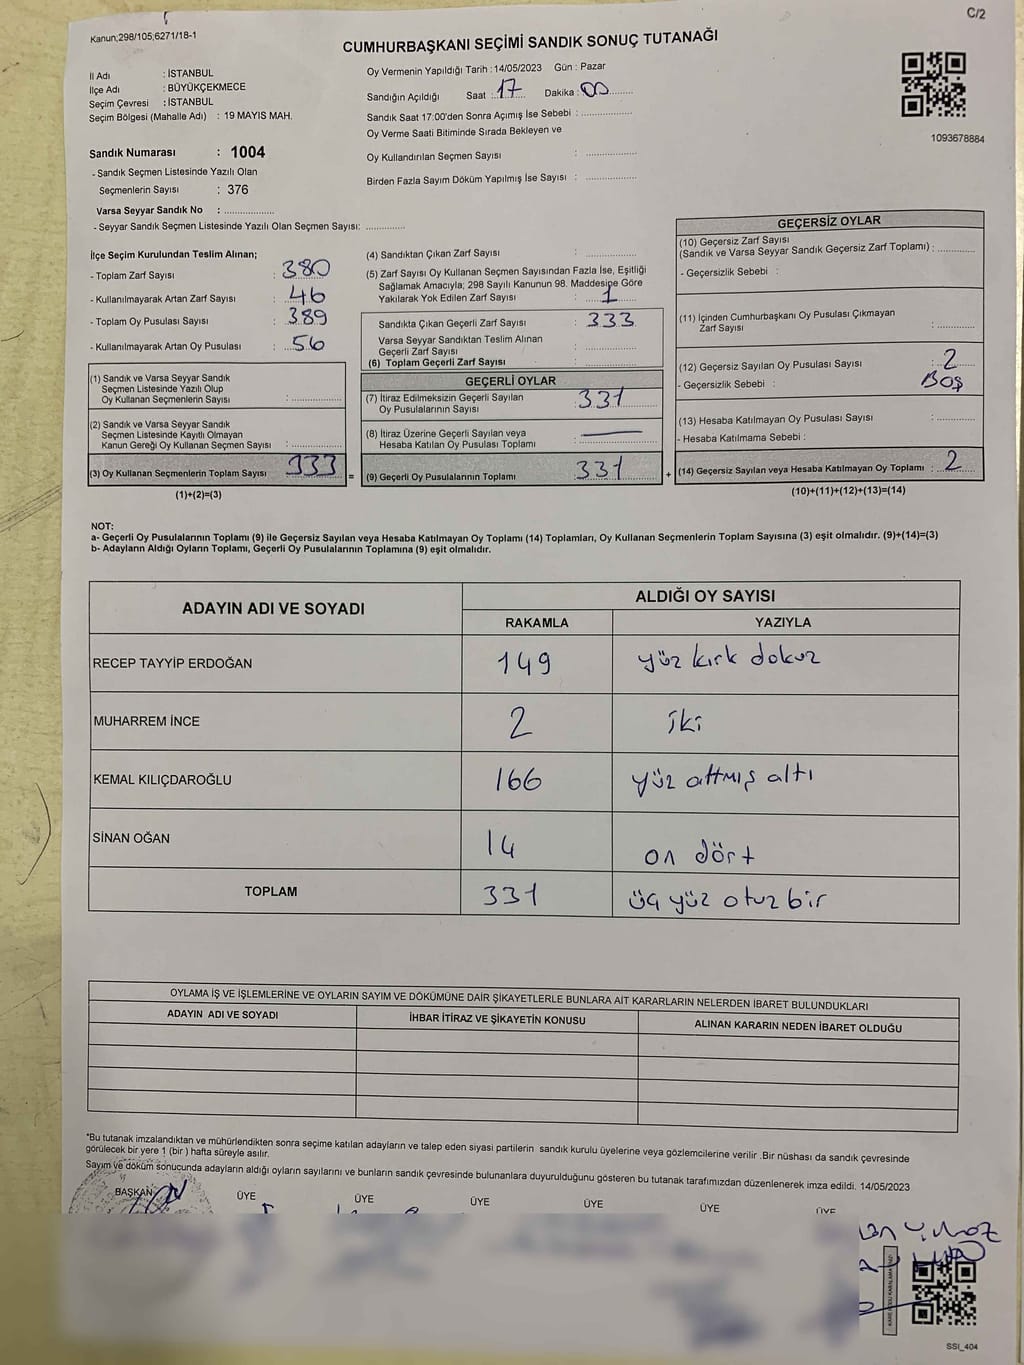 C/2
Kanun;298/105;6271/18-1
CUMHURBAŞKANI SEÇİMİ SANDIK SONUÇ TUTANAĞI
İl Adı : İSTANBUL
İlçe Adı : BÜYÜKÇEKMECE
Seçim Çevresi : İSTANBUL
Seçim Bölgesi (Mahalle Adı) : 19 MAYIS MAH.
Oy Vermenin Yapıldığı Tarih : 14/05/2023 Gün : Pazar
Sandığın Açıldığı Saat : 17 Dakika : 00
Sandık Saat 17:00'den Sonra Açımış İse Sebebi :
Oy Verme Saati Bitiminde Sırada Bekleyen ve
Oy Kullandırılan Seçmen Sayısı :
Birden Fazla Sayım Döküm Yapılmış İse Sayısı :
1093678884
Sandık Numarası : 1004
- Sandık Seçmen Listesinde Yazılı Olan
Seçmenlerin Sayısı : 376
Varsa Seyyar Sandık No :
- Seyyar Sandık Seçmen Listesinde Yazılı Olan Seçmen Sayısı:
İlçe Seçim Kurulundan Teslim Alınan;
- Toplam Zarf Sayısı : 380
- Kullanılmayarak Artan Zarf Sayısı : 46
- Toplam Oy Pusulası Sayısı : 389
- Kullanılmayarak Artan Oy Pusulası : 56
(1) Sandık ve Varsa Seyyar Sandık
Seçmen Listesinde Yazılı Olup
Oy Kullanan Seçmenlerin Sayısı :
(2) Sandık ve Varsa Seyyar Sandık
Seçmen Listesinde Kayıtlı Olmayan
Kanun Gereği Oy Kullanan Seçmen Sayısı :
(3) Oy Kullanan Seçmenlerin Toplam Sayısı 333
(1)+(2)=(3)
(4) Sandıktan Çıkan Zarf Sayısı :
(5) Zarf Sayısı Oy Kullanan Seçmen Sayısından Fazla İse, Eşitliği
Sağlamak Amacıyla; 298 Sayılı Kanunun 98. Maddesine Göre
Yakılarak Yok Edilen Zarf Sayısı : 1
Sandıkta Çıkan Geçerli Zarf Sayısı : 333
Varsa Seyyar Sandıktan Teslim Alınan
Geçerli Zarf Sayısı :
(6) Toplam Geçerli Zarf Sayısı :
GEÇERLİ OYLAR
(7) İtiraz Edilmeksizin Geçerli Sayılan
Oy Pusulalarının Sayısı : 331
(8) İtiraz Üzerine Geçerli Sayılan veya
Hesaba Katılan Oy Pusulası Toplamı :
= (9) Geçerli Oy Pusulalarının Toplamı : 331 +
GEÇERSİZ OYLAR
(10) Geçersiz Zarf Sayısı
(Sandık ve Varsa Seyyar Sandık Geçersiz Zarf Toplamı) :
- Geçersizlik Sebebi :
(11) İçinden Cumhurbaşkanı Oy Pusulası Çıkmayan
Zarf Sayısı :
(12) Geçersiz Sayılan Oy Pusulası Sayısı : 2
- Geçersizlik Sebebi : Boş
(13) Hesaba Katılmayan Oy Pusulası Sayısı :
- Hesaba Katılmama Sebebi :
(14) Geçersiz Sayılan veya Hesaba Katılmayan Oy Toplamı : 2
(10)+(11)+(12)+(13)=(14)
NOT:
a- Geçerli Oy Pusulalarının Toplamı (9) ile Geçersiz Sayılan veya Hesaba Katılmayan Oy Toplamı (14) Toplamları, Oy Kullanan Seçmenlerin Toplam Sayısına (3) eşit olmalıdır. (9)+(14)=(3)
b- Adayların Aldığı Oyların Toplamı, Geçerli Oy Pusulalarının Toplamına (9) eşit olmalıdır.
ADAYIN ADI VE SOYADI ALDIĞI OY SAYISI
RAKAMLA YAZIYLA
RECEP TAYYİP ERDOĞAN 149 yüz kırk dokuz
MUHARREM İNCE 2 iki
KEMAL KILIÇDAROĞLU 166 yüz altmış altı
SİNAN OĞAN 14 on dört
TOPLAM 331 üç yüz otuz bir
OYLAMA İŞ VE İŞLEMLERİNE VE OYLARIN SAYIM VE DÖKÜMÜNE DAİR ŞİKAYETLERLE BUNLARA AİT KARARLARIN NELERDEN İBARET BULUNDUKLARI
ADAYIN ADI VE SOYADI İHBAR İTİRAZ VE ŞİKAYETİN KONUSU ALINAN KARARIN NEDEN İBARET OLDUĞU
*Bu tutanak imzalandıktan ve mühürlendikten sonra seçime katılan adayların ve talep eden siyasi partilerin sandık kurulu üyelerine veya gözlemcilerine verilir .Bir nüshası da sandık çevresinde
görülecek bir yere 1 (bir ) hafta süreyle asılır.
Sayım ve döküm sonucunda adayların aldığı oyların sayılarını ve bunların sandık çevresinde bulunanlara duyurulduğunu gösteren bu tutanak tarafımızdan düzenlenerek imza edildi. 14/05/2023
BAŞKAN ÜYE ÜYE ÜYE ÜYE ÜYE ÜYE
SSI_404